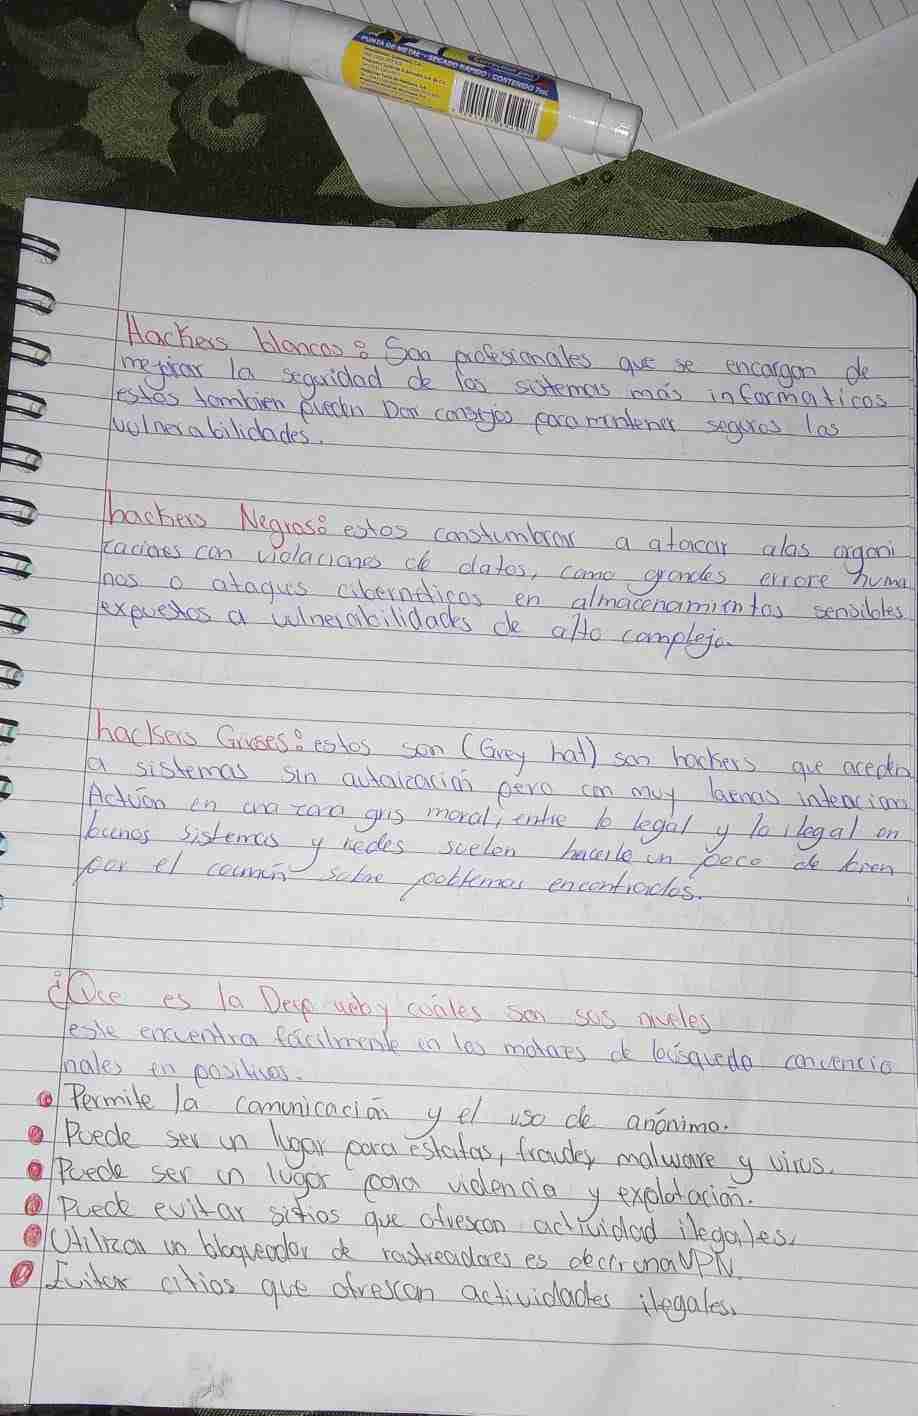 PUNTA DE METAL - SECADO RAPIDO | CONTENIDO 7ml
Hackers blancos: Son profesionales que se encargan de
mejorar la seguridad de los sistemas más informaticos
estos tambien pueden Dar consejos para mantener seguros las
vulnerabilidades.
hackers Negros: estos constumbrar a atacar alas organi
caciones con violaciones de datos, como grandes errore huma
nos o ataques ciberneticos en almacenamientos sensibles
expuestos a vulnerabilidades de alto compleja.
hackers Grises: estos son (Grey hat) son hackers que aceden
a sistemas sin autorización pero con muy buenas intencion
Actúan en una zona gris moral, entre lo legal y lo ilegal en
buenos sistemas y redes suelen hacerle un poco de bien
por el común sobre problemas encontrados.
¿Que es la Deep web y cuáles son sus niveles
este encuentra fácilmente en los motores de búsqueda convencio
nales en positivos.
Permite la comunicación y el uso de anónimo.
Puede ser un lugar para estafas, fraudes malware y virus.
Puede ser un lugar para violencia y explotación.
Puede evitar sitios que ofrescan actividad ilegales.
Utilizar un bloqueador de rastreadores es una VPN.
Evitar citios que ofrescan actividades ilegales.